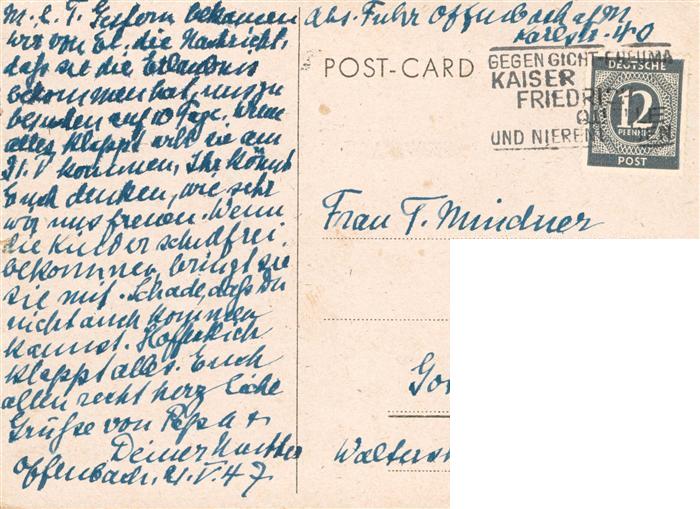 M. l. T. Gestern bekamen
wir von El. die Nachricht,
daß sie die Erlaubnis
bekommen hat, uns zu
besuchen auf 10 Tage. Wenn
alles klappt will sie am
21. V kommen, Ihr könnt
Euch denken, wie sehr
wir uns freuen. Wenn
die Kinder schulfrei
bekommen, bringt sie
sie mit. Schade, daß Du
nicht auch kommen
kannst. Hoffentlich
klappt alles. Euch
allen recht herzliche
Grüße von Papa +
Deiner Mutter
Offenbach, 21. V. 47
Abs. Fuhr Offenbach a/M
Karlstr. 40
POST-CARD
GEGEN GICHT RHEUMA
KAISER
FRIEDRICH
QUELLE
UND NIERENLEIDEN
DEUTSCHE
12
PFENNIG
POST
Frau T. Mindner
Go
Walterst